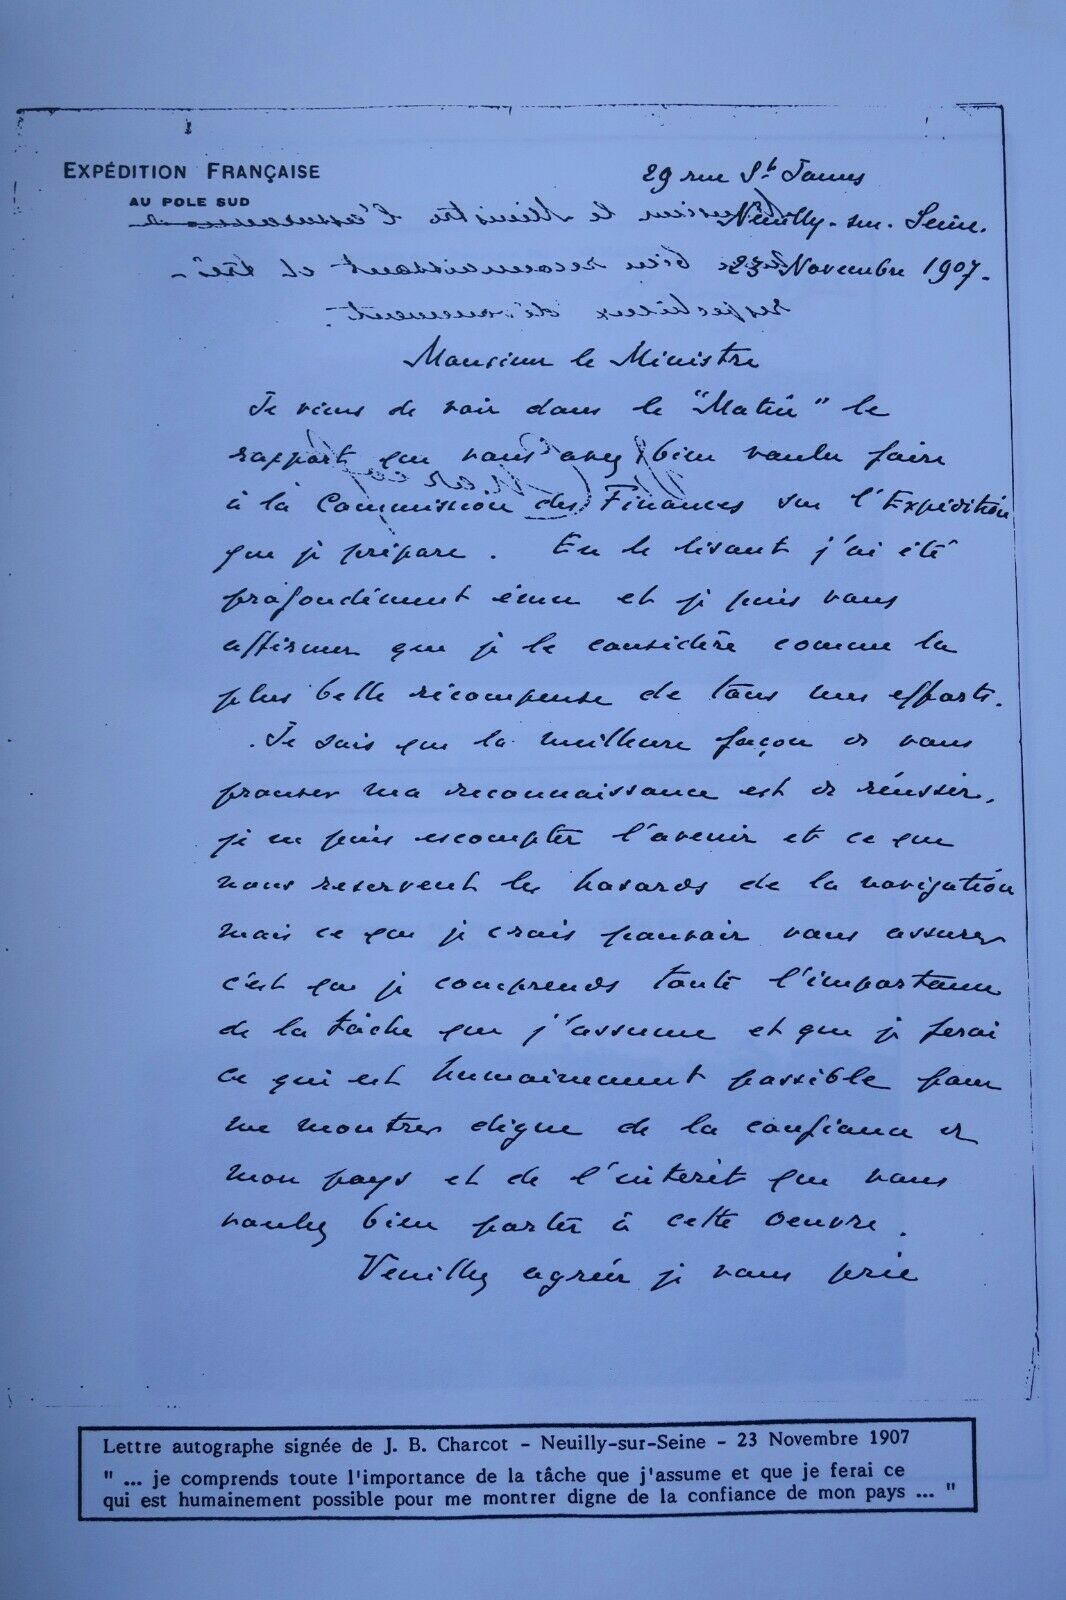 EXPÉDITION FRANÇAISE
AU POLE SUD
29 rue St James
Neuilly-sur-Seine.
23 Novembre 1907-
Monsieur le Ministre
Je viens de voir dans le "Matin" le
rapport que vous avez bien voulu faire
à la Commission des Finances sur l'Expédition
que je prépare. En le lisant j'ai été
profondément ému et je puis vous
affirmer que je le considère comme la
plus belle récompense de tous mes efforts.
Je sais que la meilleure façon de vous
prouver ma reconnaissance est de réussir,
je ne puis escompter l'avenir et ce que
nous reservent les hasards de la navigation
mais ce que je crois pouvoir vous assurer
c'est que je comprends toute l'importance
de la tâche que j'assume et que je ferai
ce qui est humainement possible pour
me montrer digne de la confiance de
mon pays et de l'intérêt que vous
voulez bien porter à cette oeuvre.
Veuillez agréer je vous prie
Lettre autographe signée de J. B. Charcot - Neuilly-sur-Seine - 23 Novembre 1907
" ... je comprends toute l'importance de la tâche que j'assume et que je ferai ce
qui est humainement possible pour me montrer digne de la confiance de mon pays ... "